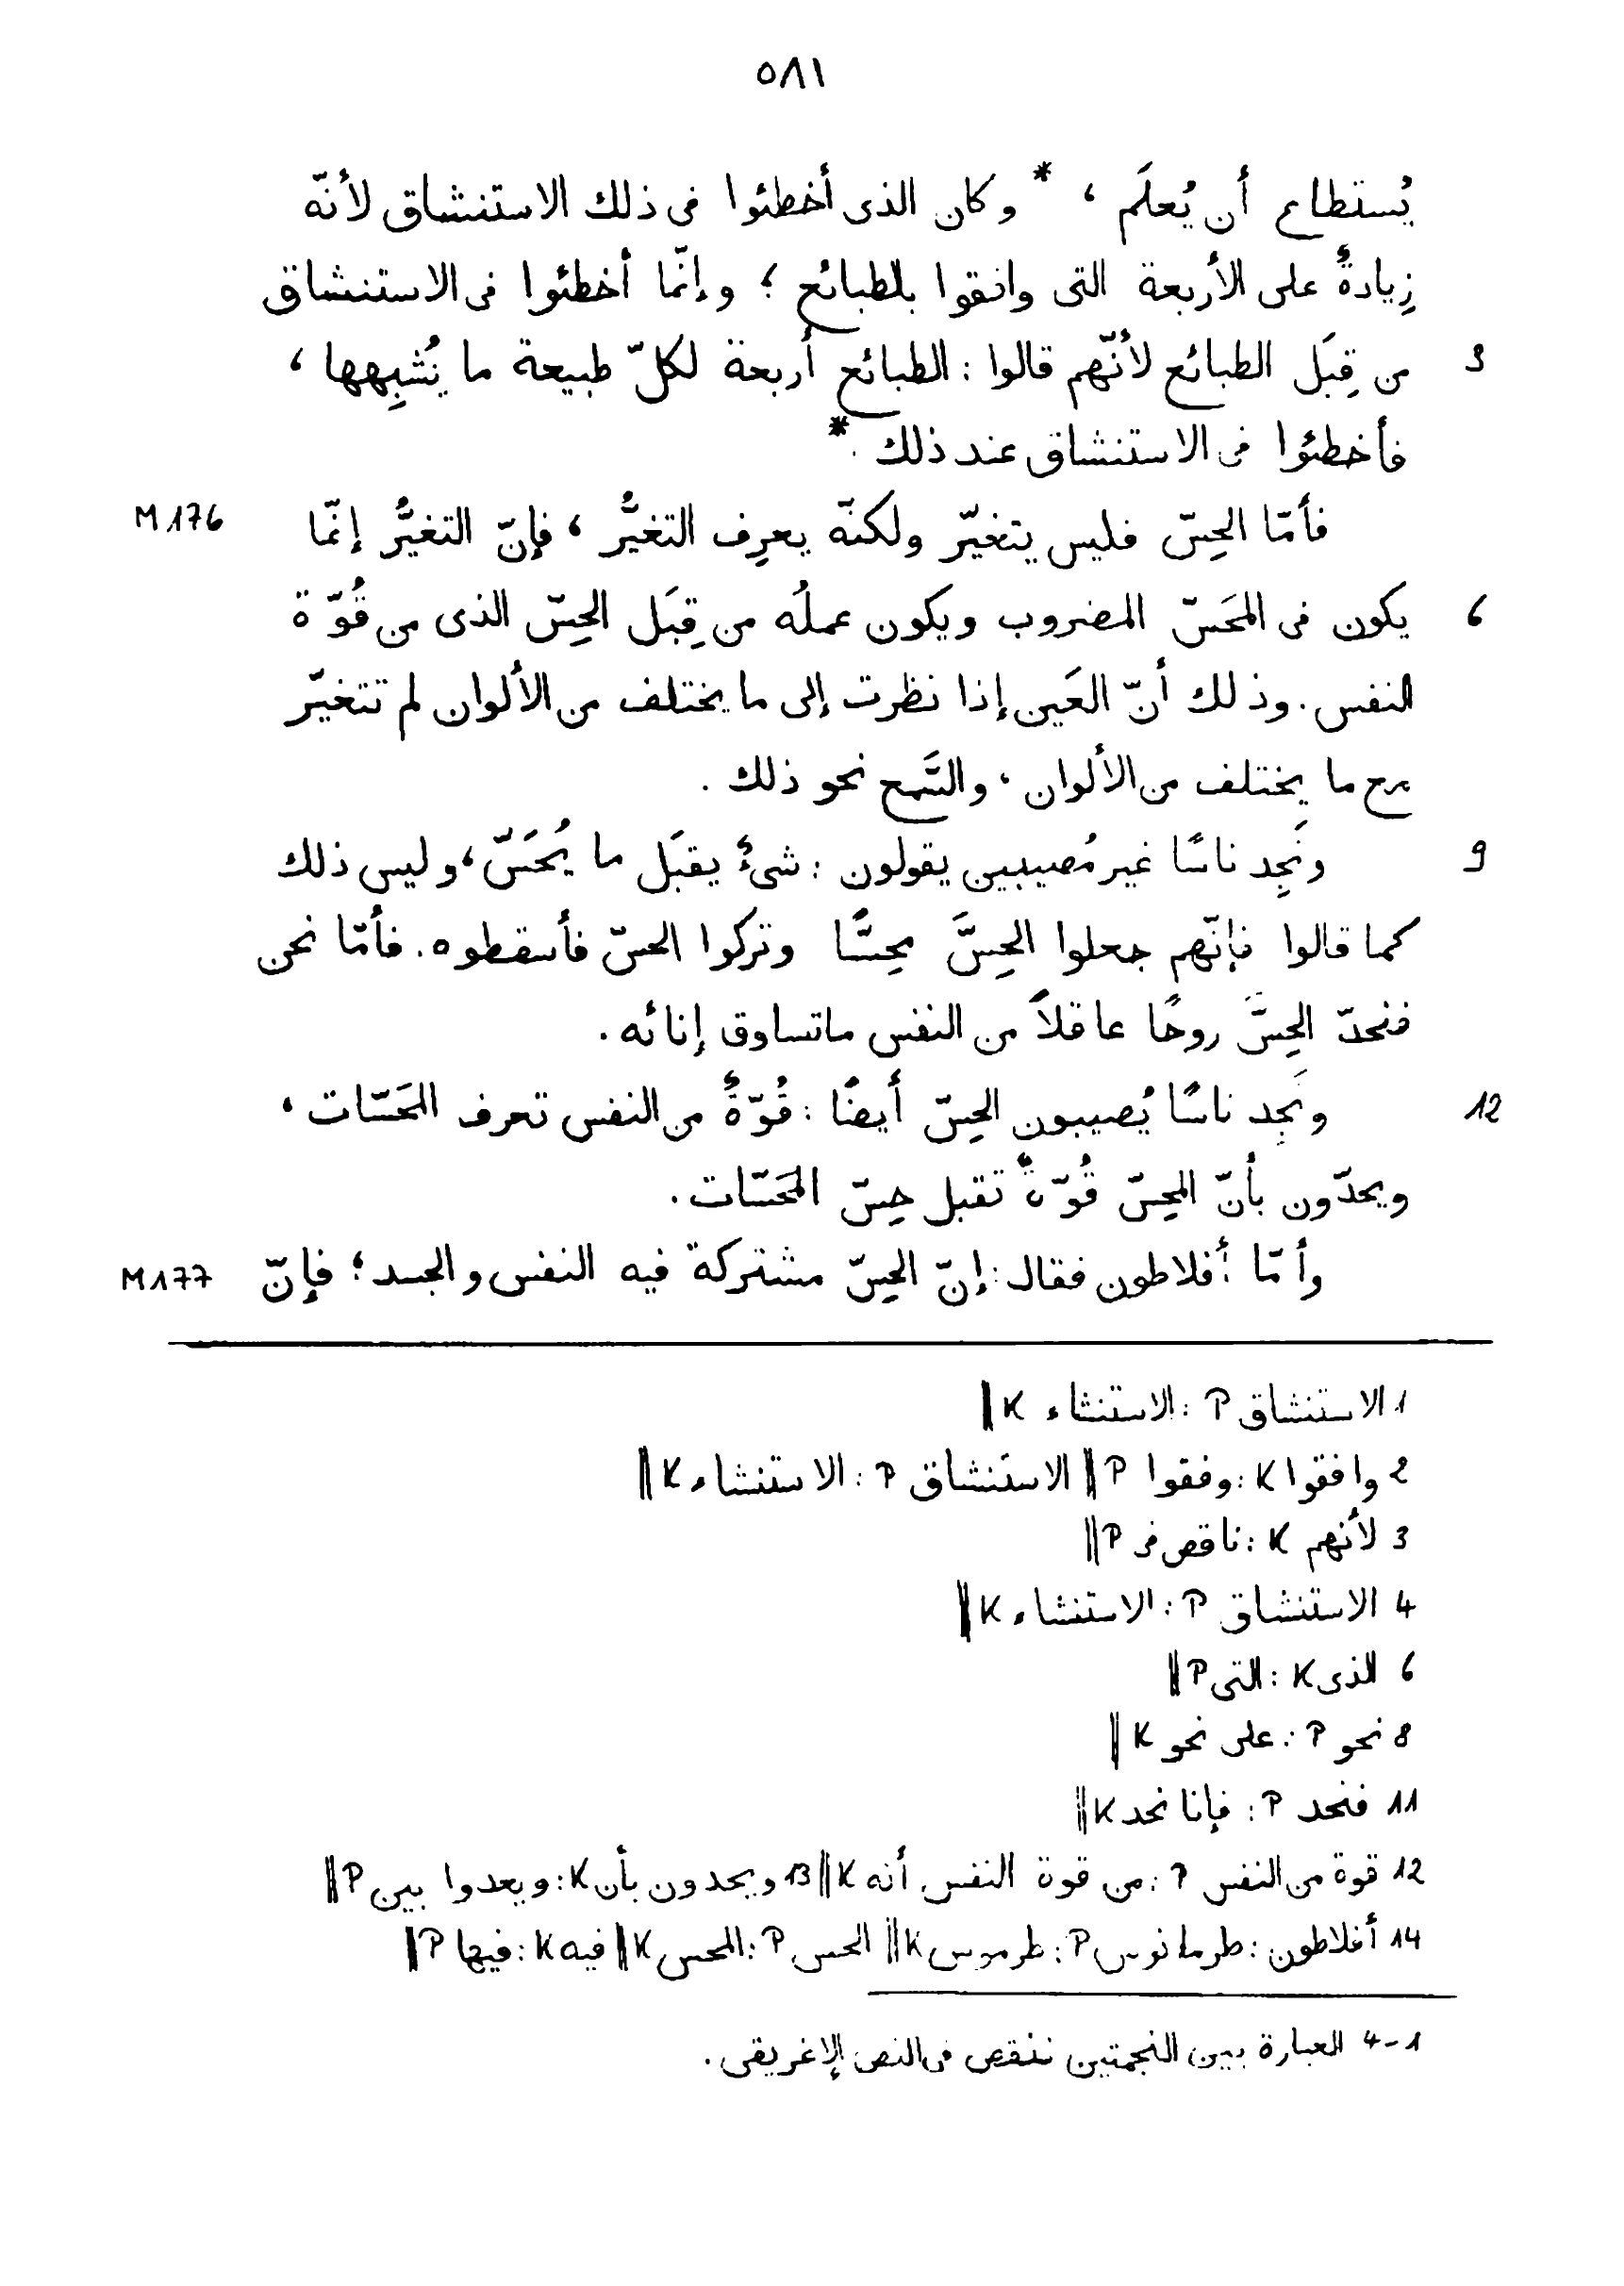 ٥٨١
يُستطاع أن يُعلَم ، * وكان الذى أخطئوا فى ذلك الاستنشاق لأنّه
زِيادةٌ على الأربعة التى وافقوا بالطبائع ؛ وإنّما أخطئوا فى الاستنشاق
3 من قِبَل الطبائع لأنّهم قالوا : الطبائع أربعة لكلّ طبيعة ما يُشبِهها ،
فأخطئوا فى الاستنشاق عند ذلك . *
M 176 فأمّا الحِسّ فليس يتغيّر ولكنّه يعرِف التغيُّر ، فإنّ التغيُّر إنّما
6 يكون فى المَحَسّ المضروب ويكون عملُه من قِبَل الحِسّ الذى من قُوّة
النفس . وذلك أنّ العَين إذا نظرت إلى ما يختلف من الألوان لم تتغيّر
مع ما يختلف من الألوان ، والسَّمع نحو ذلك .
9 ونَجِد ناسًا غير مُصيبين يقولون : شىءٌ يقبَل ما يُحَسّ ، وليس ذلك
كما قالوا فإنّهم جعلوا الحِسَّ محِسًّا وتركوا الحسّ فأسقطوه . فأمّا نحن
فنحدّ الحِسَّ روحًا عاقلاً من النفس ماتساوق إنائه .
12 ونَجِد ناسًا يُصيبون الحِسّ أيضًا : قُوّةٌ من النفس تعرف المَحَسّات ،
ويحدّون بأنّ المحِسّ قُوّةٌ تقبل حِسّ المَحَسّات .
M 177 وأمّا أفلاطون فقال : إنّ الحِسّ مشتركة فيه النفس والجسد ؛ فإنّ
1 الاستنشاق P : الاستنشاء K ‖
2 وافقوا K : وفقوا P ‖ الاستنشاق P : الاستنشاء K ‖
3 لأنهم K : ناقص فى P ‖
4 الاستنشاق P : الاستنشاء K ‖
6 الذى K : التى P ‖
8 نحو P : على نحو K ‖
11 فنحد P : فإنا نحد K ‖
12 قوة من النفس P : من قوة النفس أنه K ‖ 13 ويحدون بأن K : وبعدوا بين P ‖
14 أفلاطون : طرمانوس P : طرموس K ‖ الحس P : المحس K ‖ فيه K : فيها P ‖
1-4 العبارة بين النجمتين تنقص فى النص الإغريقى .